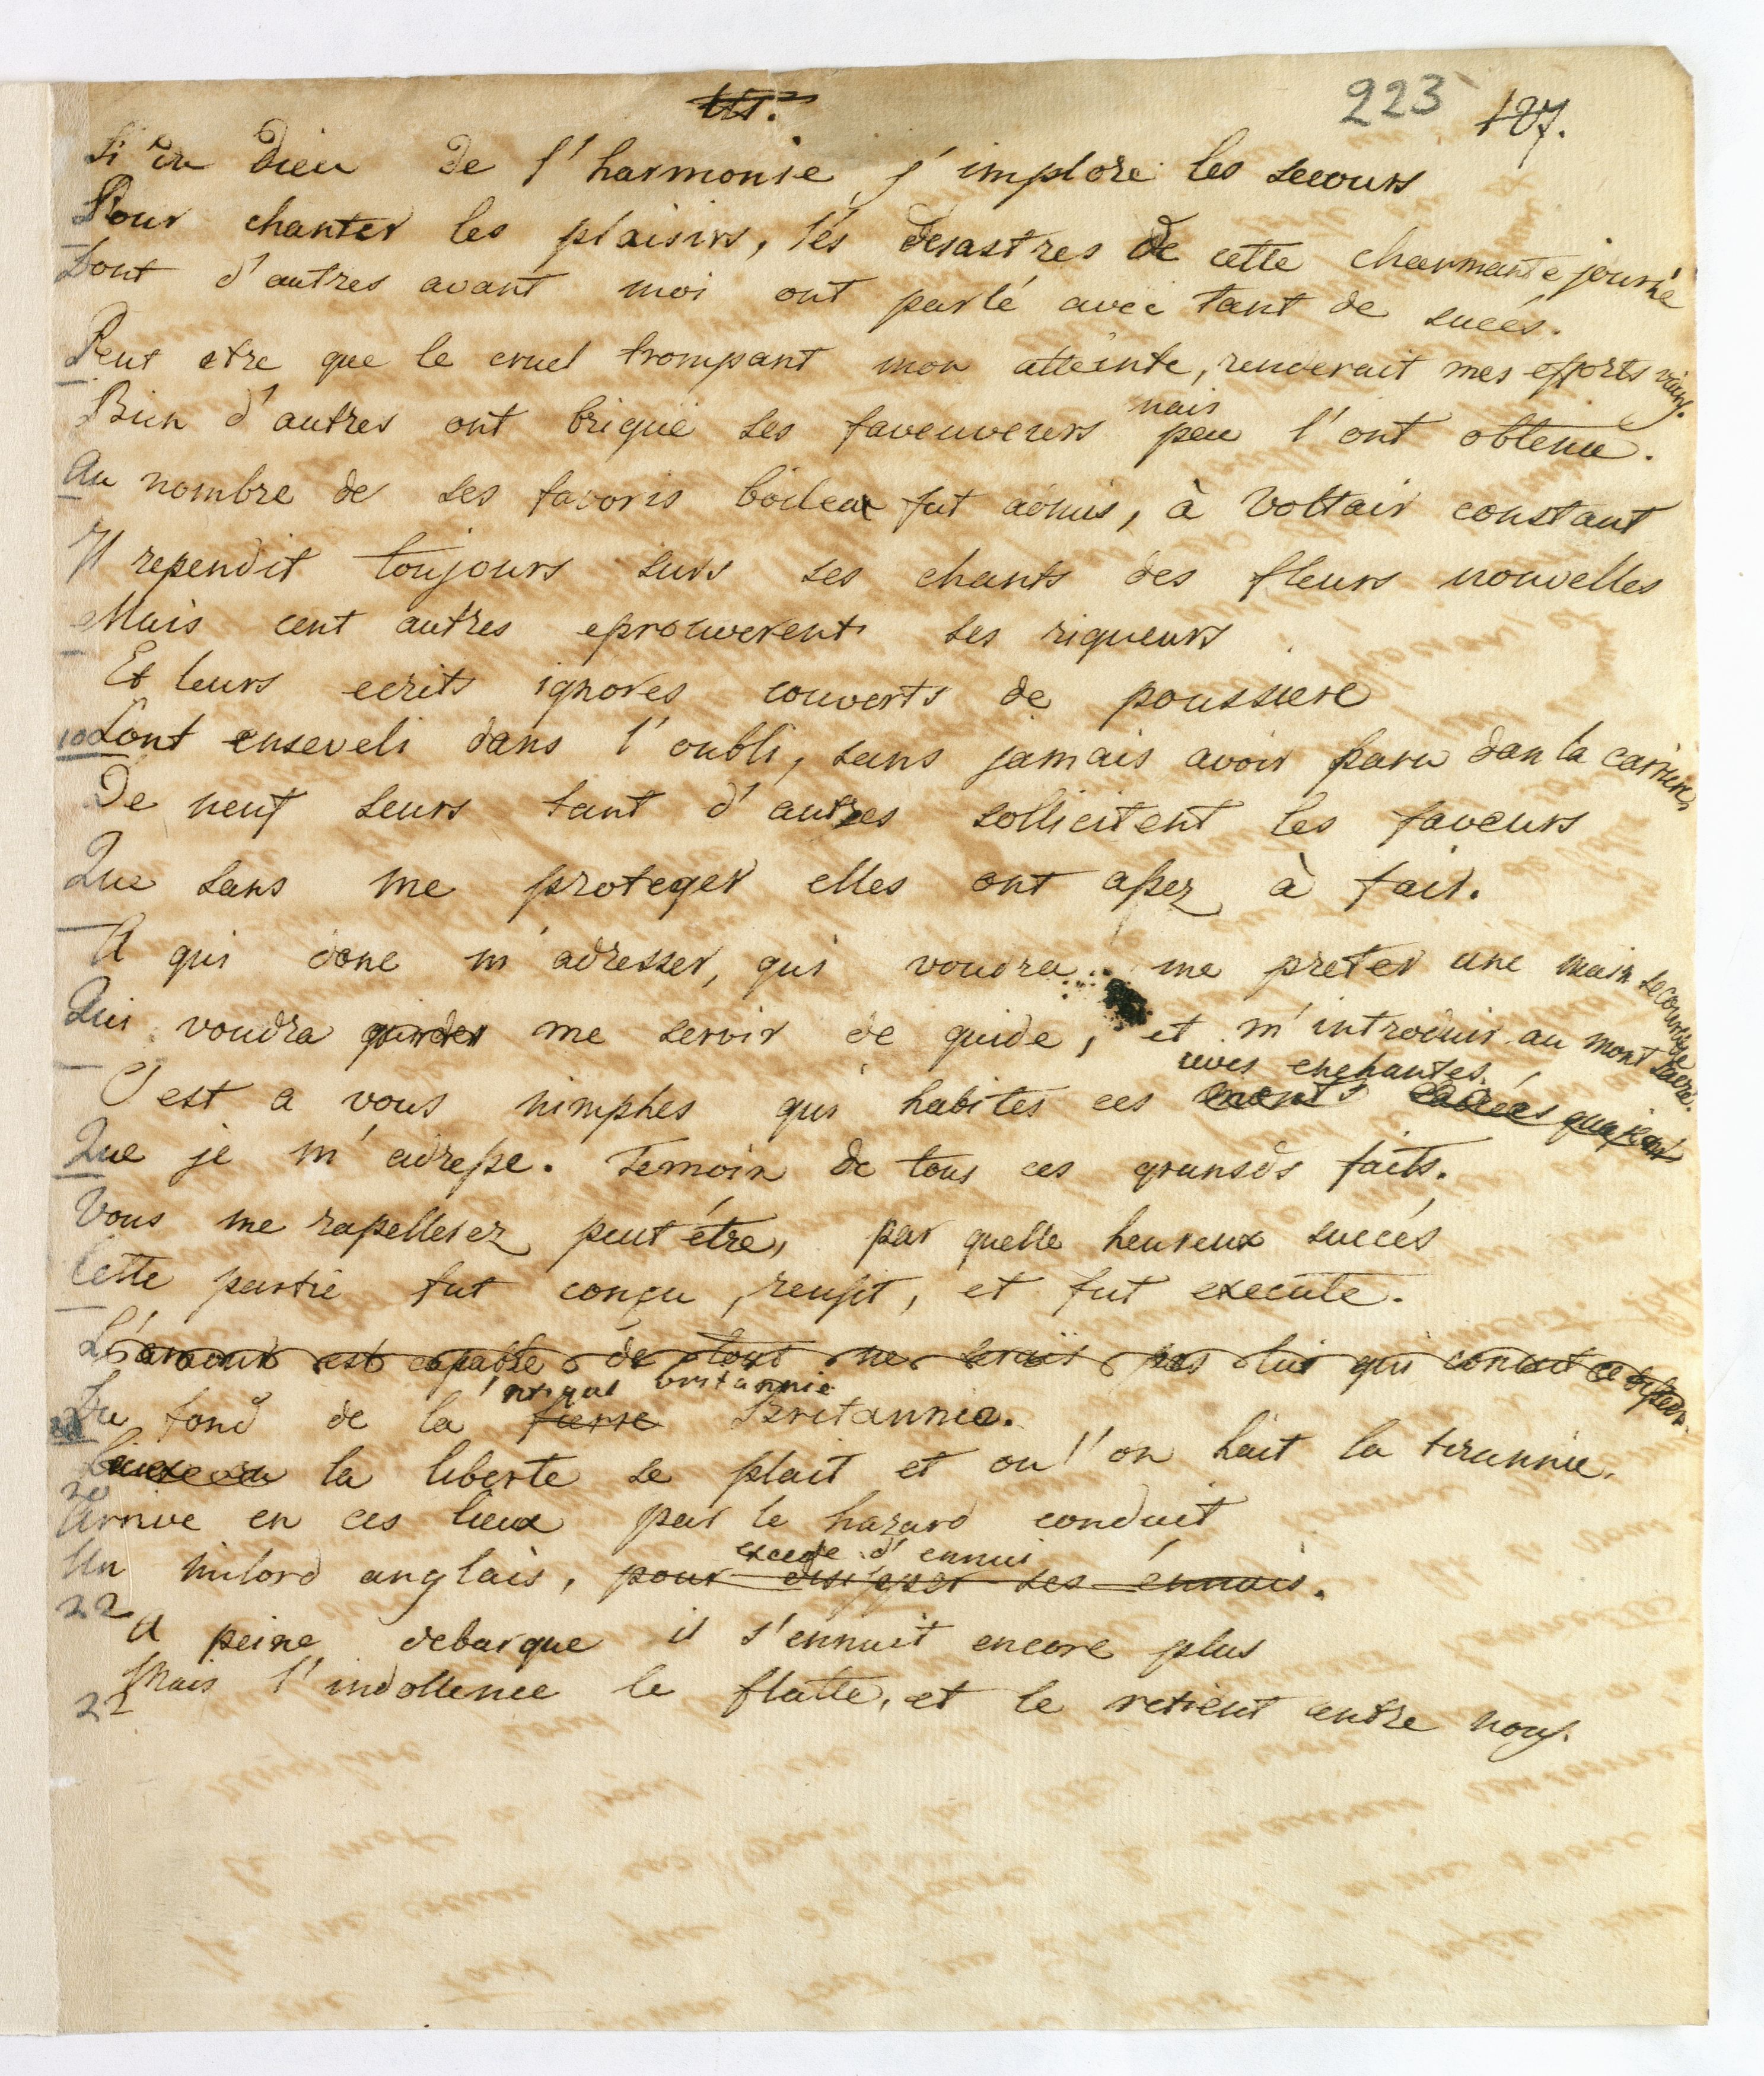 223 187.
Si du Dieu de l'harmonie j'implore les secours
Pour chanter les plaisirs, les desastres de cette charmante journé
Dont d'autres avant moi ont parlé avec tant de succés.
Peut etre que le cruel trompant mon atteinte, renderait mes efforts vains.
mais
Bien d'autres ont brigué ses faveuveurs peu l'ont obtenu.
Au nombre de ses favoris boileau fut admis, à Voltair constant
Il rependit toujours surs ses chants des fleurs nouvelles
Mais cent autres eprouverent ses riqueurs
Et leurs ecrits ignores couverts de poussiere
10 Sont enseveli dans l'oubli, sans jamais avoir paru dan la carriere,
De neuf seurs tant d'autres sollicitent les faveurs
Que sans me proteger elles ont assez à fair.
A qui donc m'adresser, qui voudra me preter une main secourable
Qui voudra guider me servir de guide, et m'introduir au mont sacré.
rives enchantes.
C'est a vous nimphes qui habites ces monts sacrés
Que je m'adresse. Temoin de tous ces grands faits.
Vous me rapellerez peut étre, par quelle heureux succés
Cette partie fut conçu, reussit, et fut execute.
L'amour est capable de tout ne serait pas lui qui conçut ce dessein.
antique britannie
Du fond de la fierre Britannie.
la liberte se plait et ou l'on hait la tirannie.
20
Arrive en ces lieux par le hazard conduit
excede d'ennui
Un milord anglais, pour dissipper ses énnuis.
22
A peine debarque il s'ennuit encore plus
Mais l'indollence le flatte, et le retient entre nous.
22